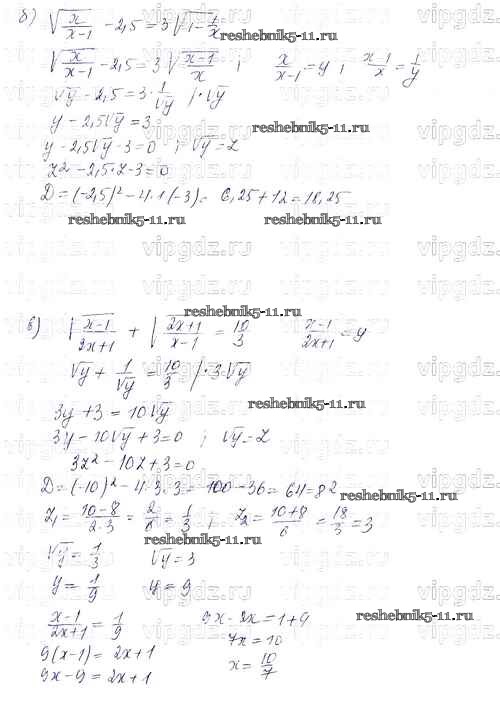 б) √(x/(x-1)) - 2,5 = 3√(1 - 1/x)
reshebnik5-11.ru
√(x/(x-1)) - 2,5 = 3√((x-1)/x) ; x/(x-1) = y ; (x-1)/x = 1/y
√y - 2,5 = 3·1/√y |·√y
y - 2,5√y = 3
reshebnik5-11.ru
y - 2,5√y - 3 = 0 ; √y = z
z² - 2,5·z - 3 = 0
D = (-2,5)² - 4·1·(-3) = 6,25 + 12 = 18,25
reshebnik5-11.ru reshebnik5-11.ru
reshebnik5-11.ru
в) √((x-1)/(2x+1)) + √((2x+1)/(x-1)) = 10/3 (x-1)/(2x+1) = y
√y + 1/√y = 10/3 |·3√y
3y + 3 = 10√y
reshebnik5-11.ru
3y - 10√y + 3 = 0 ; √y = z
3z² - 10z + 3 = 0
D = (-10)² - 4·3·3 = 100 - 36 = 64 = 8²
reshebnik5-11.ru
z₁ = (10-8)/(2·3) = 2/6 = 1/3 ; z₂ = (10+8)/6 = 18/3 = 3
reshebnik5-11.ru
√y = 1/3 √y = 3
y = 1/9 y = 9
(x-1)/(2x+1) = 1/9 9x - 2x = 1 + 9
reshebnik5-11.ru
9(x-1) = 2x+1 7x = 10
9x - 9 = 2x + 1 x = 10/7